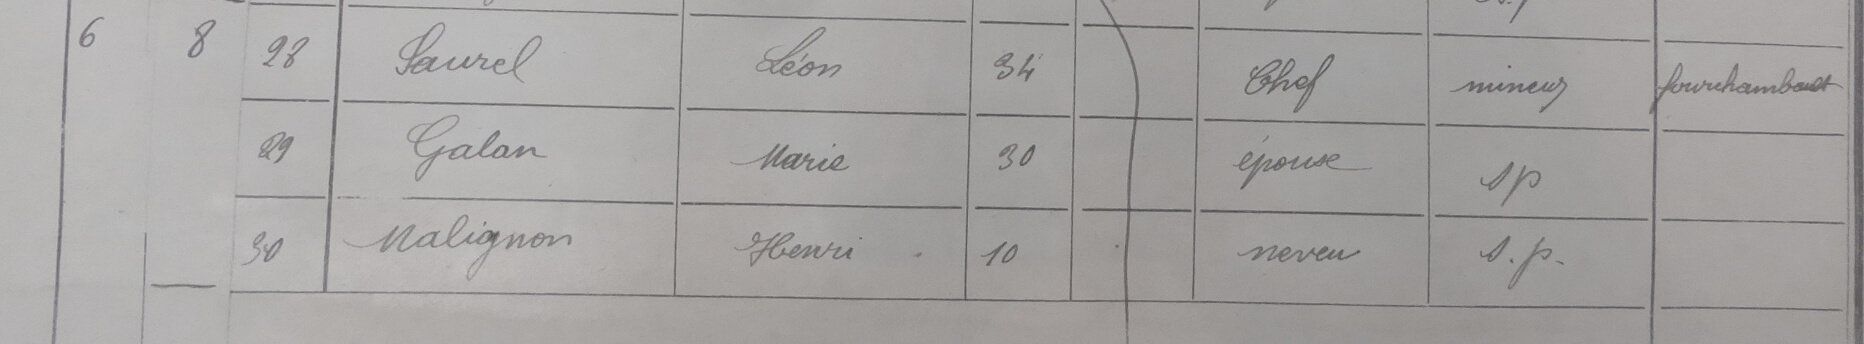 6 8 28 Saurel Léon 34 Chef mineur fourchambault
29 Galan Marie 30 épouse s p
30 Malignon Henri 10 neveu s. p.